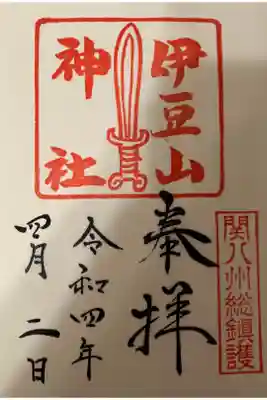 伊豆山
神社
奉拝
関八州総鎮護
令和四年
四月二日